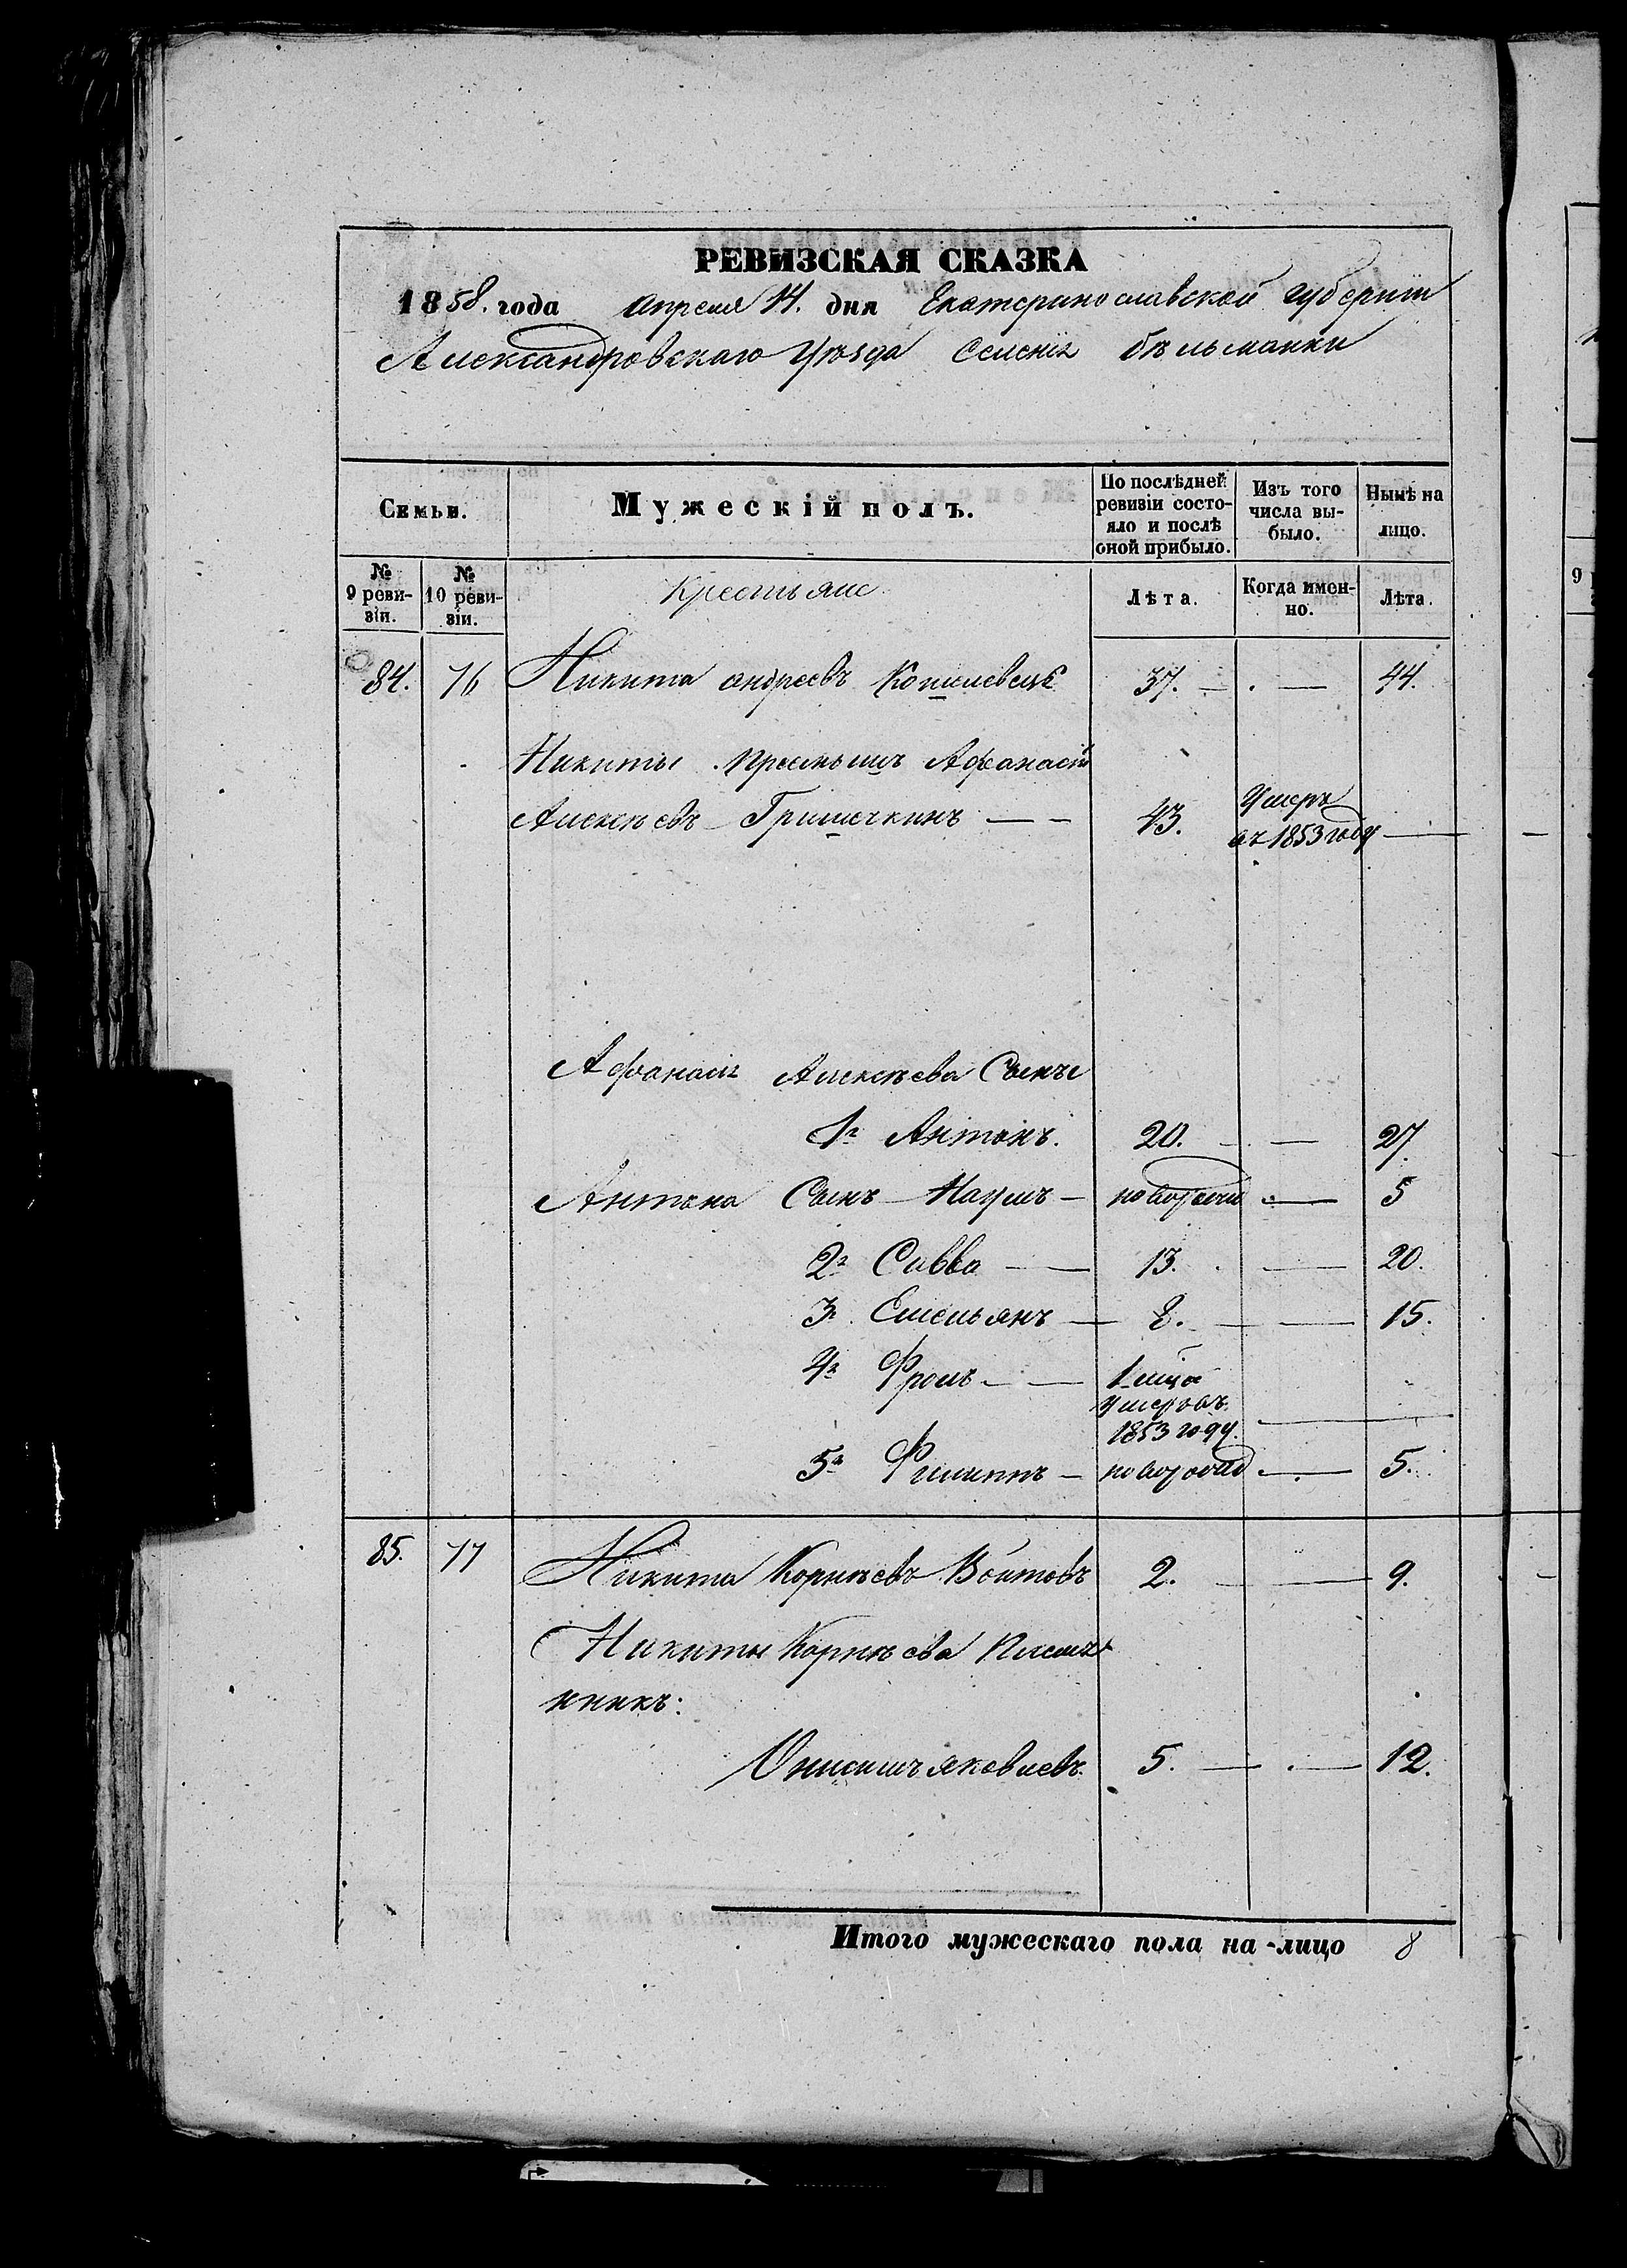 РЕВИЗСКАЯ СКАЗКА
1858. года апреля 14. дня Екатеринославской губернии
Александровскаго Уѣзда Селенiя Бѣльманки
Семьи.
Мужескій полъ.
По послѣдней ревизіи состояло и послѣ оной прибыло.
Изъ того числа выбыло.
Нынѣ на лицо.
№ 9 ревизіи.
№ 10 ревизіи.
Крестьяне
Лѣта.
Когда именно.
Лѣта.
84. 76 Никита андреевъ 37. — . — 44.
Никиты Афанасій
Алексѣевъ Гришечкинъ — — 43. Умеръ въ 1853 году —
Афанасія Алексѣева Сыны
1й Антонъ. 20. — — 27.
Антона Сынъ — Наумъ — новорожд — 5
2й Савва — 13. — 20.
3й Емельянъ — 8. — — 15.
4й Фролъ — — 1 мца умеръ въ 1853 году. —
5й Филиппъ — новорожд — 5.
85. 77 Никита Корнѣевъ Воитовъ 2. — — 9.
Никиты Корнѣева Племя
нникъ:
Онисимъ яковлевъ. 5. — . — 12.
Итого мужескаго пола на-лицо 8
9